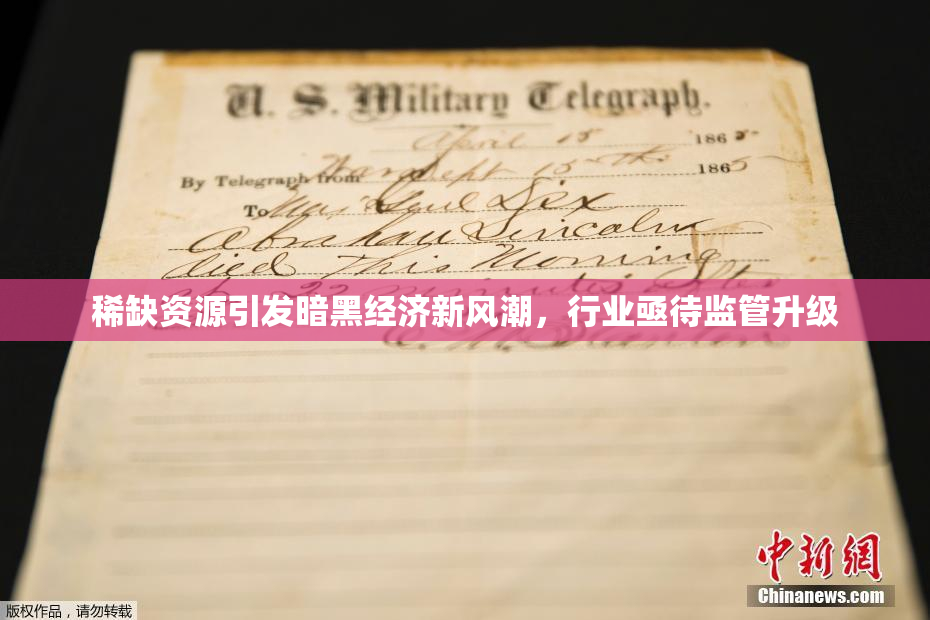 U. S. Military Telegraph.
April 15 1865.
By Telegraph from War Dept 15th 1865
To Maj Genl Dix
Abraham Lincoln
died This Morning
at 22 minutes after
稀缺资源引发暗黑经济新风潮，行业亟待监管升级
E. M. Stanton
中新网
Chinanews.com
版权作品，请勿转载